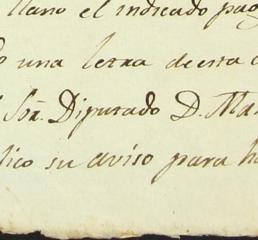 llano el indicado pag
una letra de esta c
Sor. Diputado D. Ma
lico su aviso para h